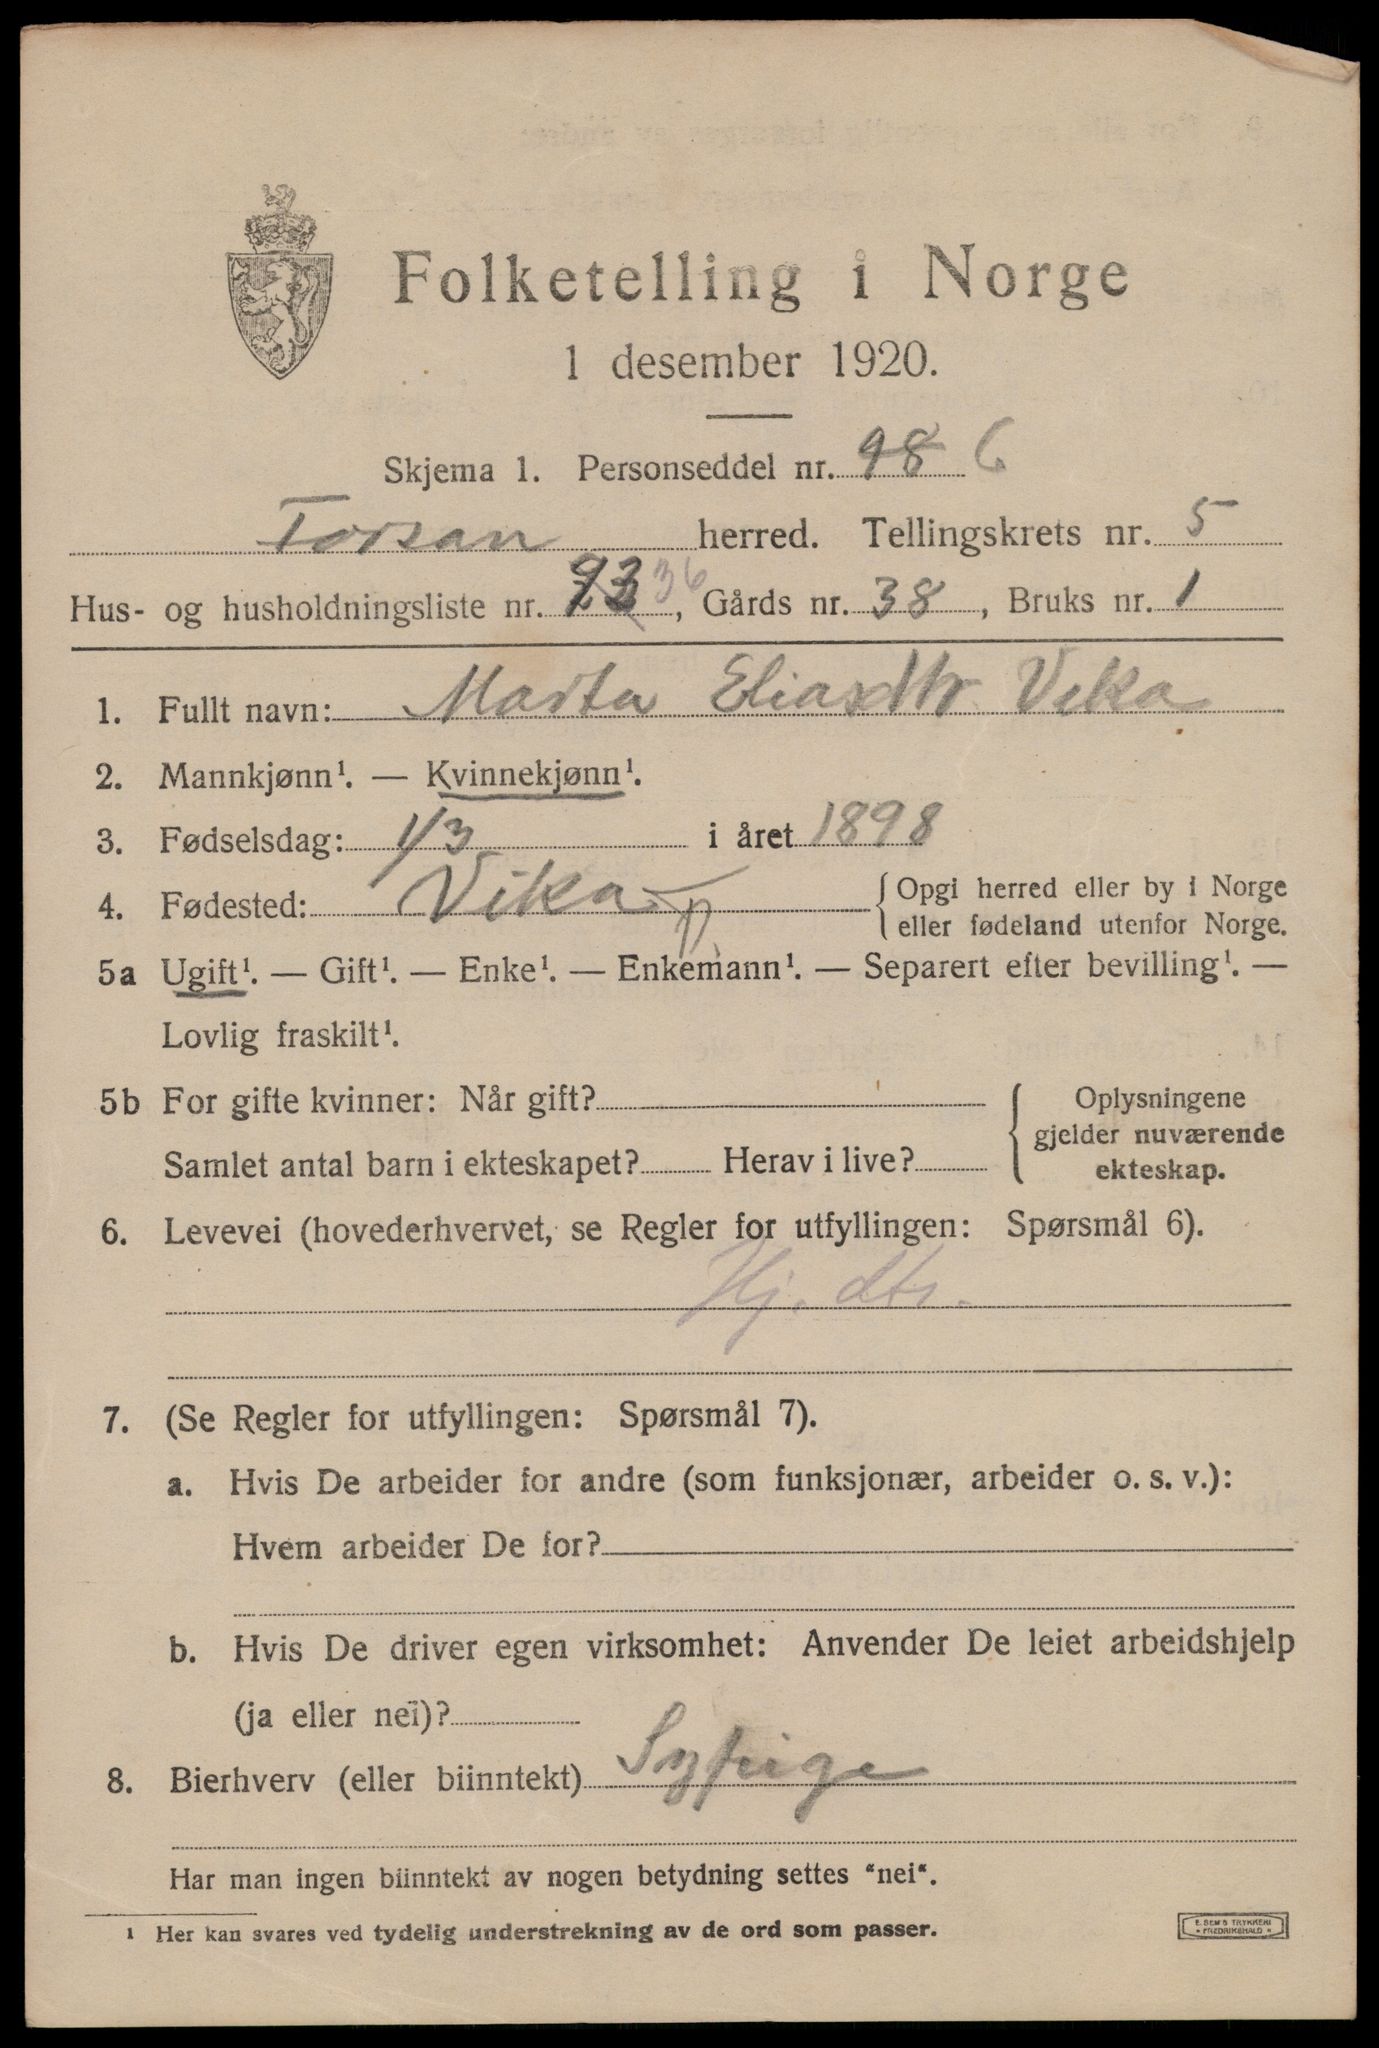 Folketelling i Norge
1 desember 1920.
Skjema 1. Personseddel nr. 98 6
Forsan herred. Tellingskrets nr. 5
Hus- og husholdningsliste nr. 36, Gårds nr. 38, Bruks nr. 1
1. Fullt navn: Marta Eliasdtr Vika
2. Mannkjønn¹. — Kvinnekjønn¹.
3. Fødselsdag: 1/3 i året 1898
4. Fødested: Vika { Opgi herred eller by i Norge
eller fødeland utenfor Norge.
5a Ugift¹. — Gift¹. — Enke¹. — Enkemann¹. — Separert efter bevilling¹. —
Lovlig fraskilt¹.
5b For gifte kvinner: Når gift? { Oplysningene
gjelder nuværende
Samlet antal barn i ekteskapet? Herav i live? ekteskap.
6. Levevei (hovederhvervet, se Regler for utfyllingen: Spørsmål 6).
Hj. dtr.
7. (Se Regler for utfyllingen: Spørsmål 7).
a. Hvis De arbeider for andre (som funksjonær, arbeider o. s. v.):
Hvem arbeider De for?
b. Hvis De driver egen virksomhet: Anvender De leiet arbeidshjelp
(ja eller nei)?
8. Bierhverv (eller biinntekt) Sypige
Har man ingen biinntekt av nogen betydning settes "nei".
¹ Her kan svares ved tydelig understrekning av de ord som passer.
E. SEM'S TRYKKERI
• FREDRIKSHALD •